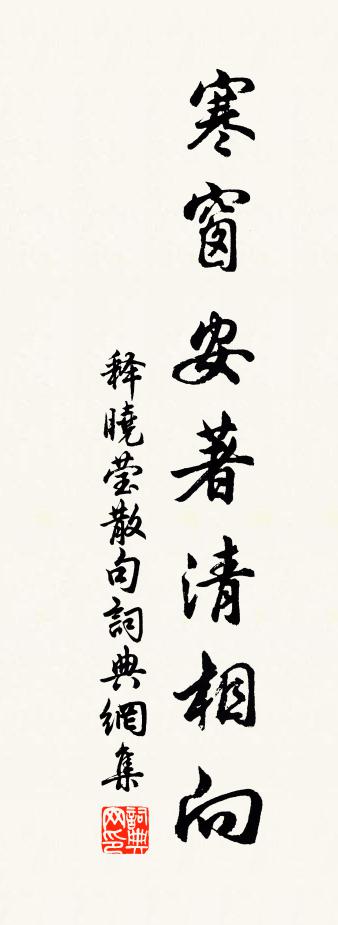 寒窗安著清相向
释曉莹散句詞典網集
詞典网印